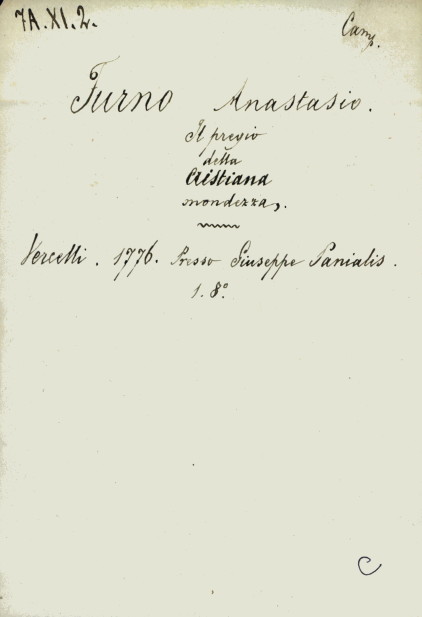 7A.XI.2.
Camp.
Furno Anastasio.
Il pregio
della
Cristiana
mondezza,.
Vercelli. 1776. Presso Giuseppe Panialis.
1. 8°
C